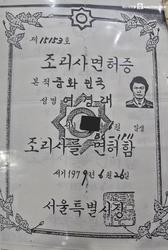 제 15153 호
조리사면허증
본적 중화민국
성명
월 일생
조리사를 면허함
서기 1979년 6월 26일
서울특별시장